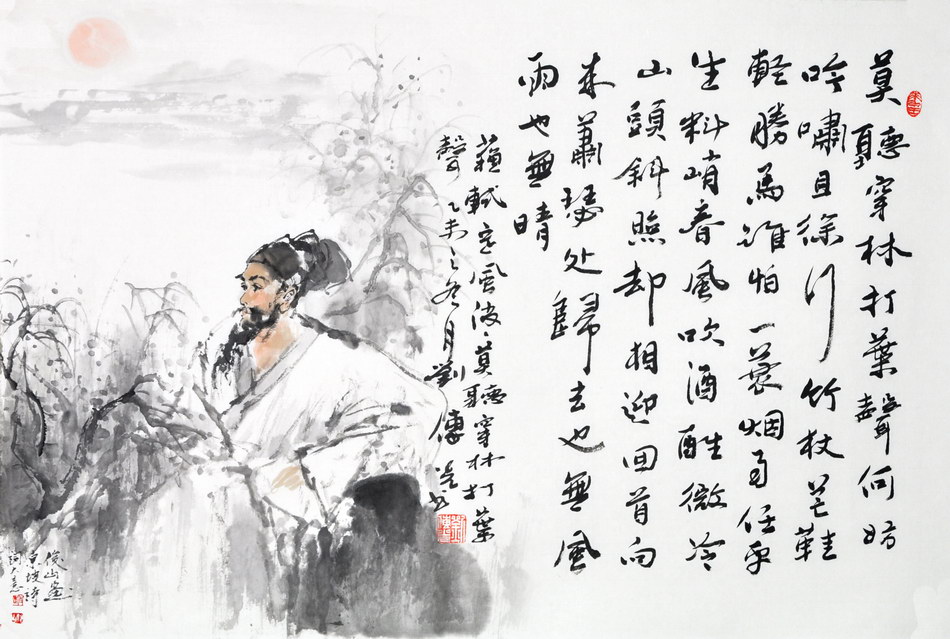 莫聽穿林打葉聲何妨
吟嘯且徐行竹杖芒鞋
輕勝馬誰怕一蓑烟雨任平
生料峭春風吹酒醒微冷
山頭斜照却相迎回首向
来蕭瑟处歸去也無風
雨也無晴
蘇軾定風波·莫聽穿林打葉
聲乙未之冬月劉傳书
俊山画
東坡詩
詞大意